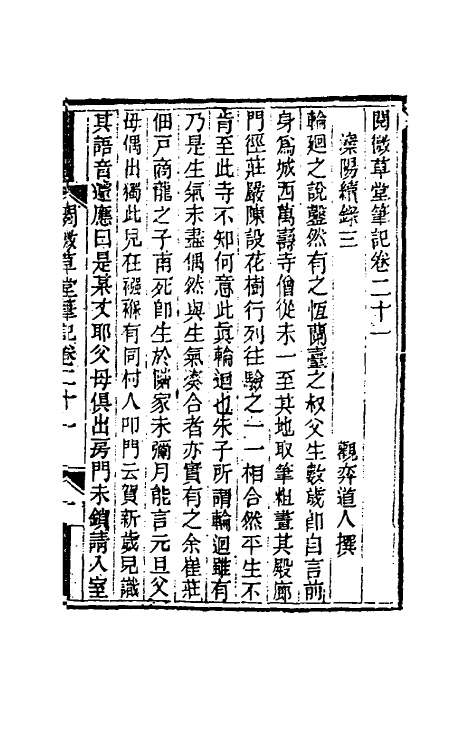 閱微草堂筆記卷二十一
灤陽續錄三　觀弈道人撰
輪廻之說鑿然有之恆蘭臺之叔父生數歲卽自言前
身爲城西萬壽寺僧從未一至其地取筆粗畫其殿廊
門徑莊嚴陳設花樹行列往驗之一一相合然平生不
肯至此寺不知何意此眞輪廻也朱子所謂輪廻雖有
乃是生氣未盡偶然與生氣湊合者亦實有之余崔莊
佃戸商龍之子甫死卽生於隣家未彌月能言元旦父
母偶出獨此兒在襁褓有同村人叩門云賀新歲兒識
其語音遽應曰是某丈耶父母俱出房門未鎖請入室
閱微草堂筆記卷二十一　一